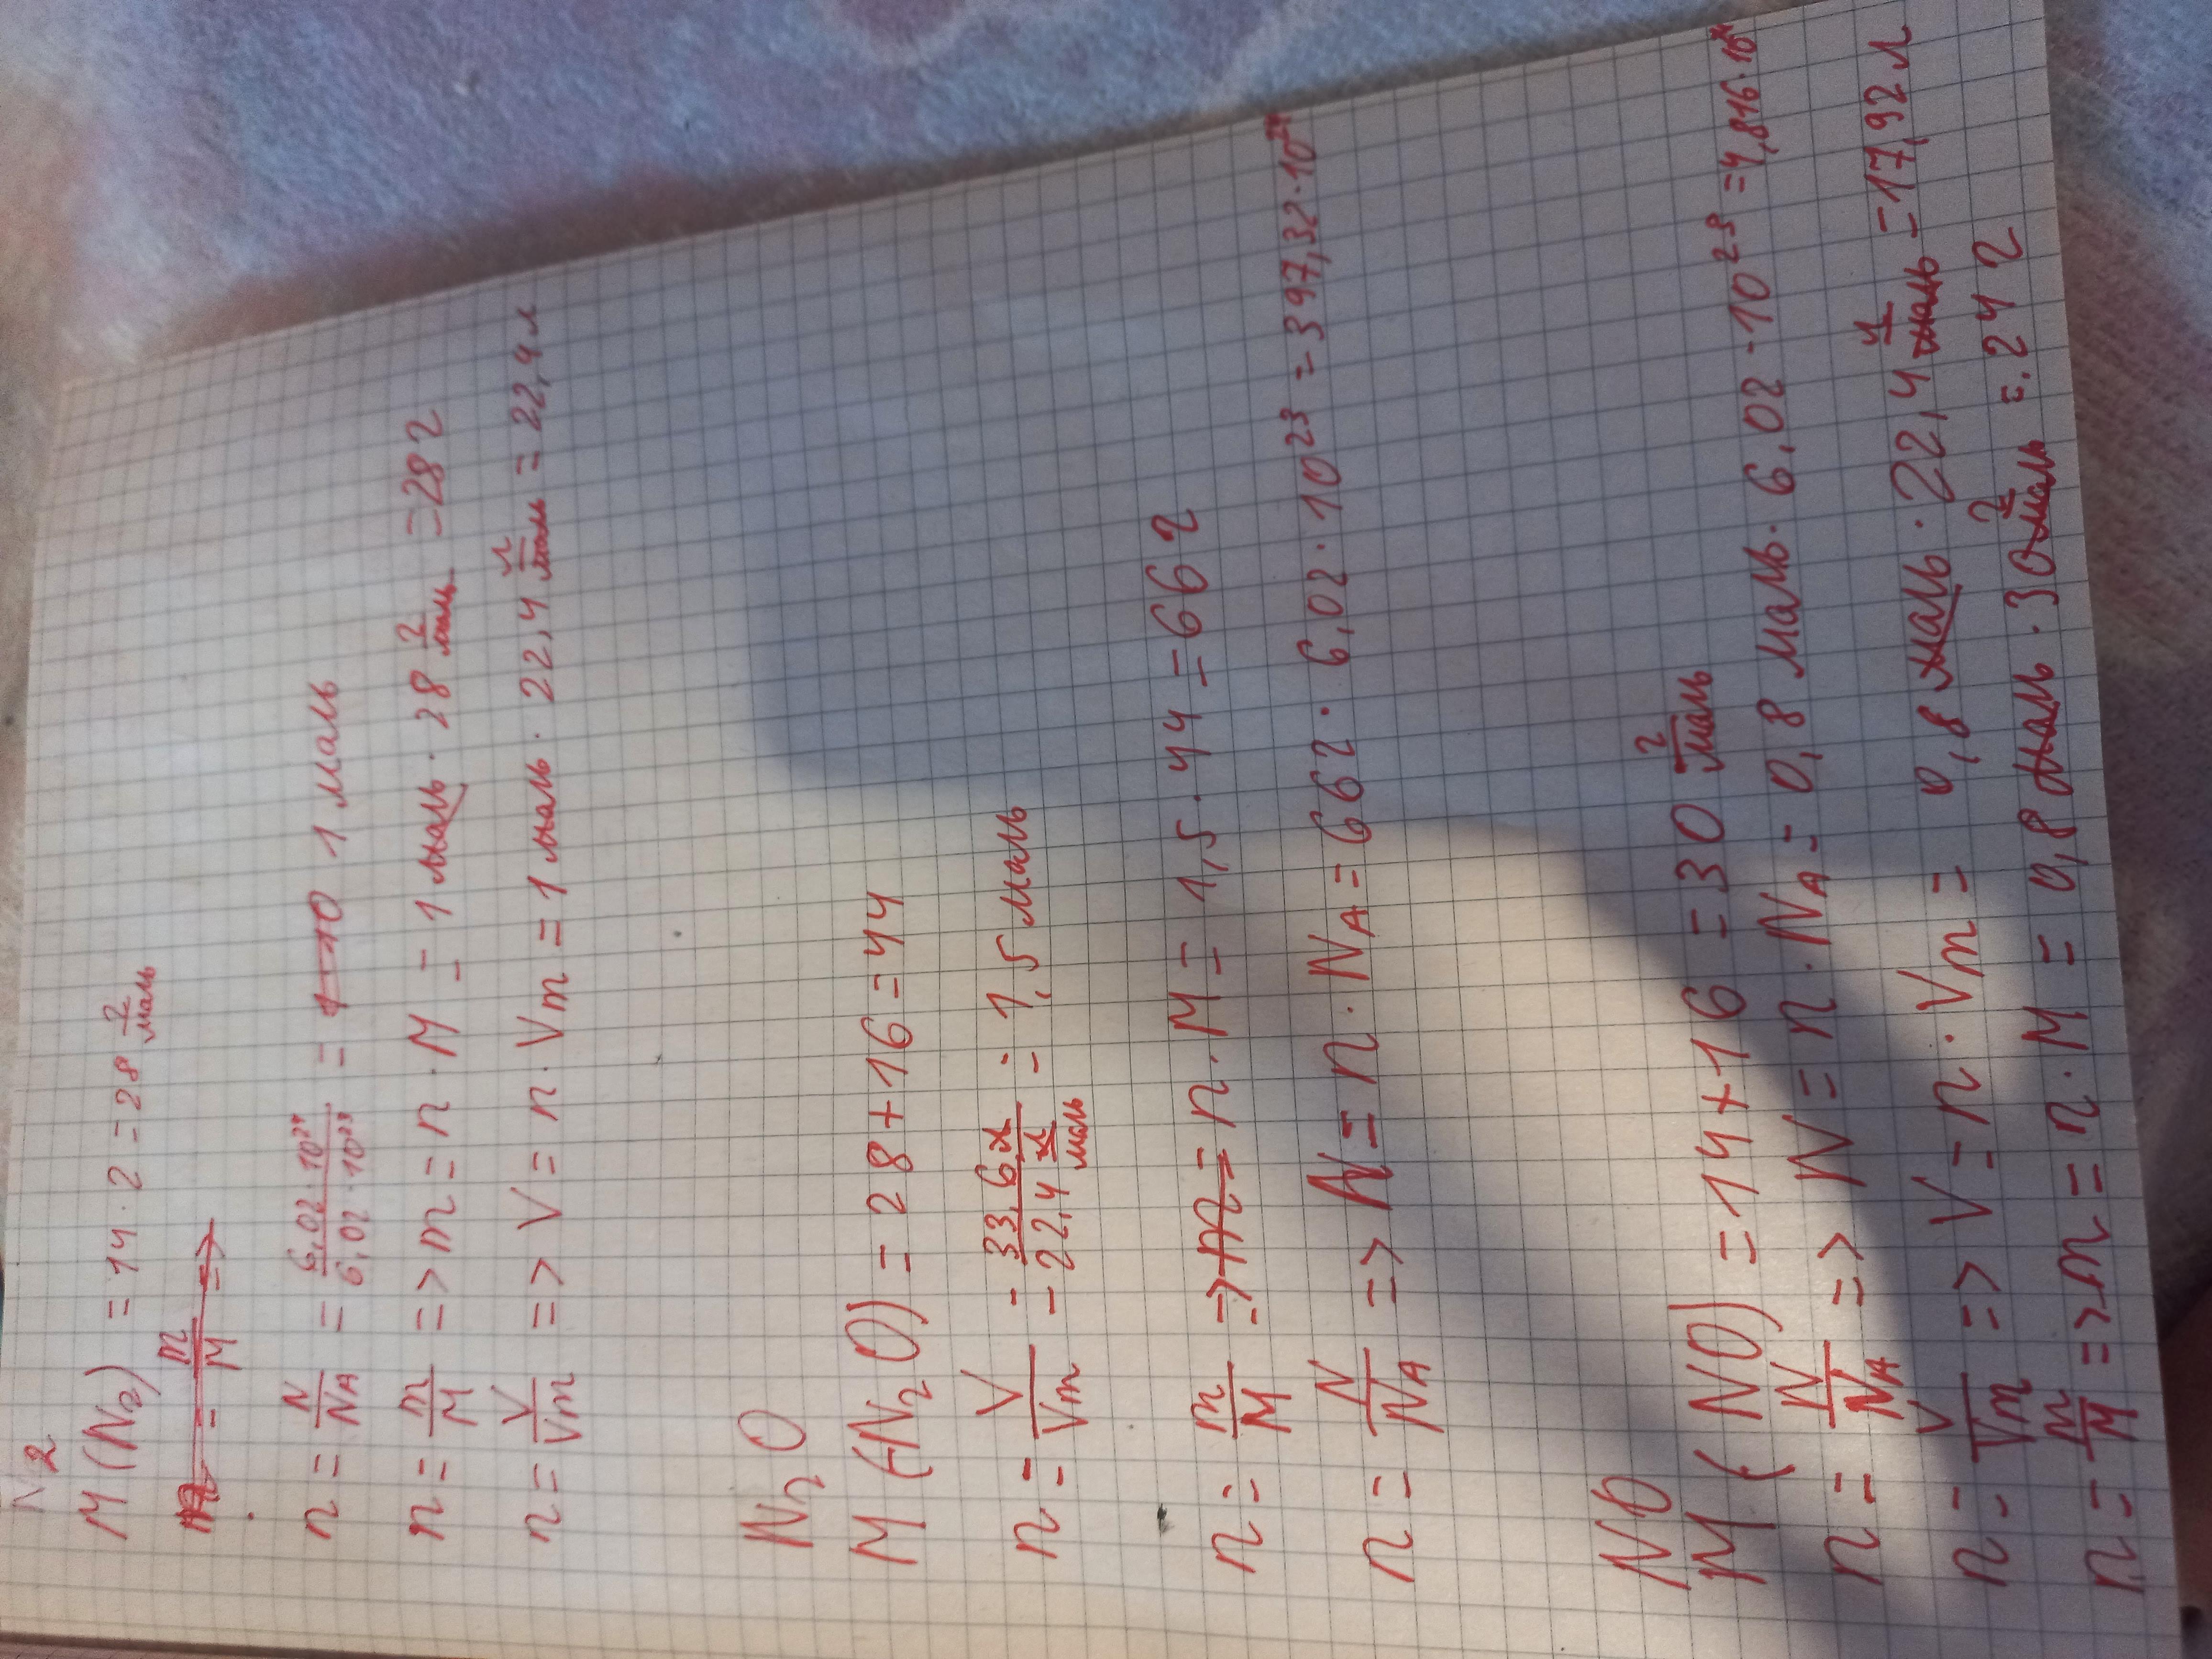 N2
M(N2) = 14 · 2 = 28 г/моль
n = m/M =>
n = N/NA = 6,02·10²⁴/6,02·10²³ = 1 10 1 моль
n = m/M => m = n·M = 1 моль · 28 г/моль = 28 г
n = V/Vm => V = n·Vm = 1 моль · 22,4 л/моль = 22,4 л
N2O
M(N2O) = 28+16=44
n = V/Vm = 33,6 л/22,4 л/моль = 1,5 моль
n = m/M => m = n·M = 1,5·44 = 66 г
n = N/NA => N = n·NA = 66 г · 6,02·10²³ = 397,32·10²⁴
NO
M(NO) = 14+16 = 30 г/моль
n = N/NA => N = n·NA = 0,8 моль · 6,02·10²³ = 4,816·10²⁴
n = V/Vm => V = n·Vm = 0,8 моль · 22,4 л/моль = 17,92 л
n = m/M => m = n·M = 0,8 моль · 30 г/моль = 24 г